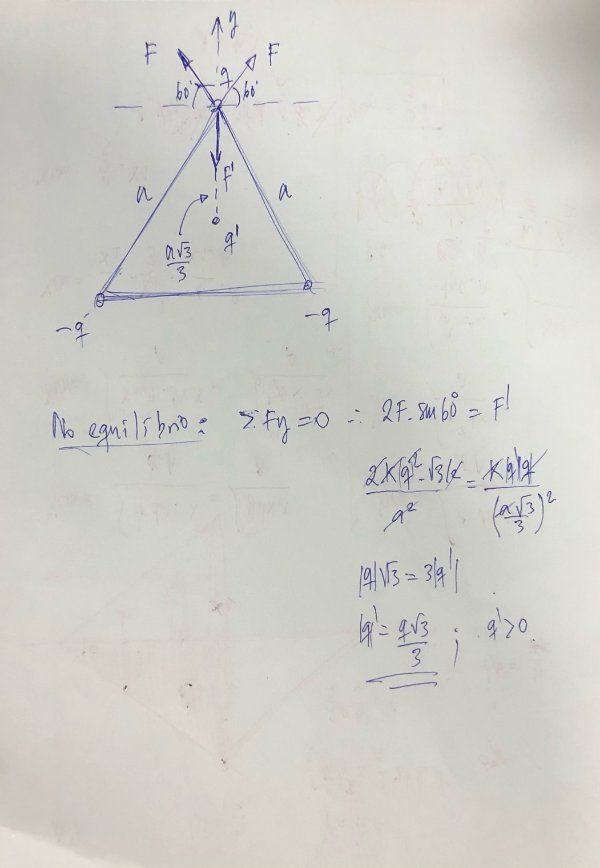 y
F F
q
60° 60°
a F' a
a√3/3 q'
-q -q
No equilíbrio: ΣFy=0 ∴ 2F.sen60°=F'
2K|q|²·√3/2 / a² = K|q'||q| / (a√3/3)²
|q|√3=3|q'|
|q'|=q√3/3 ; q'>0.